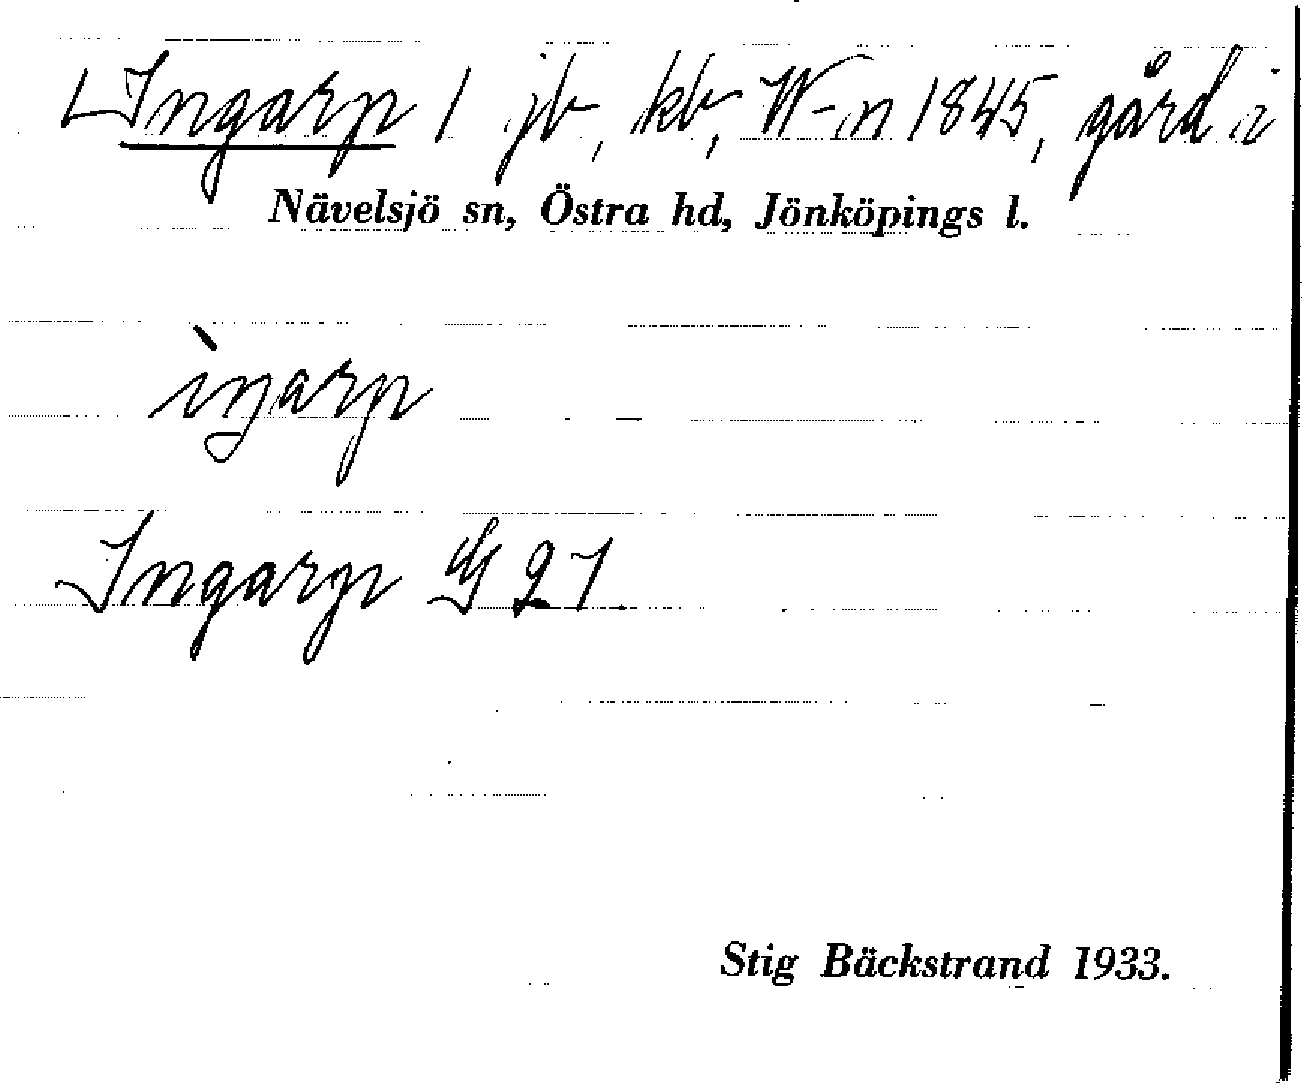 Ingarp 1 jb, kb, W-n 1845, gård i
Nävelsjö sn, Östra hd, Jönköpings l.
ìŋarp
Ingarp G 21
Stig Bäckstrand 1933.